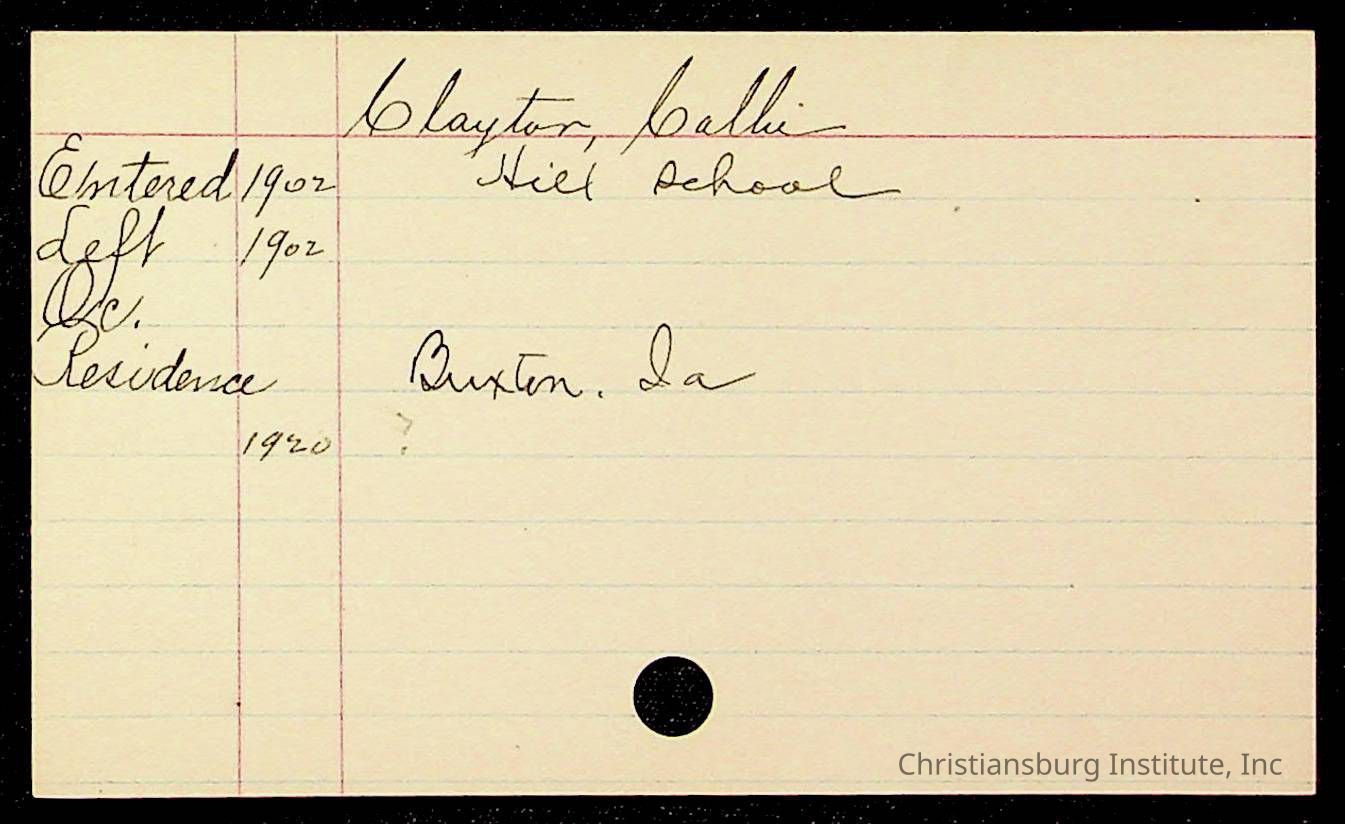 Clayton, Callie
Entered 1902 Hill School
Left 1902
Oc.
Residence Buxton. Ia
1920 ?
Christiansburg Institute, Inc